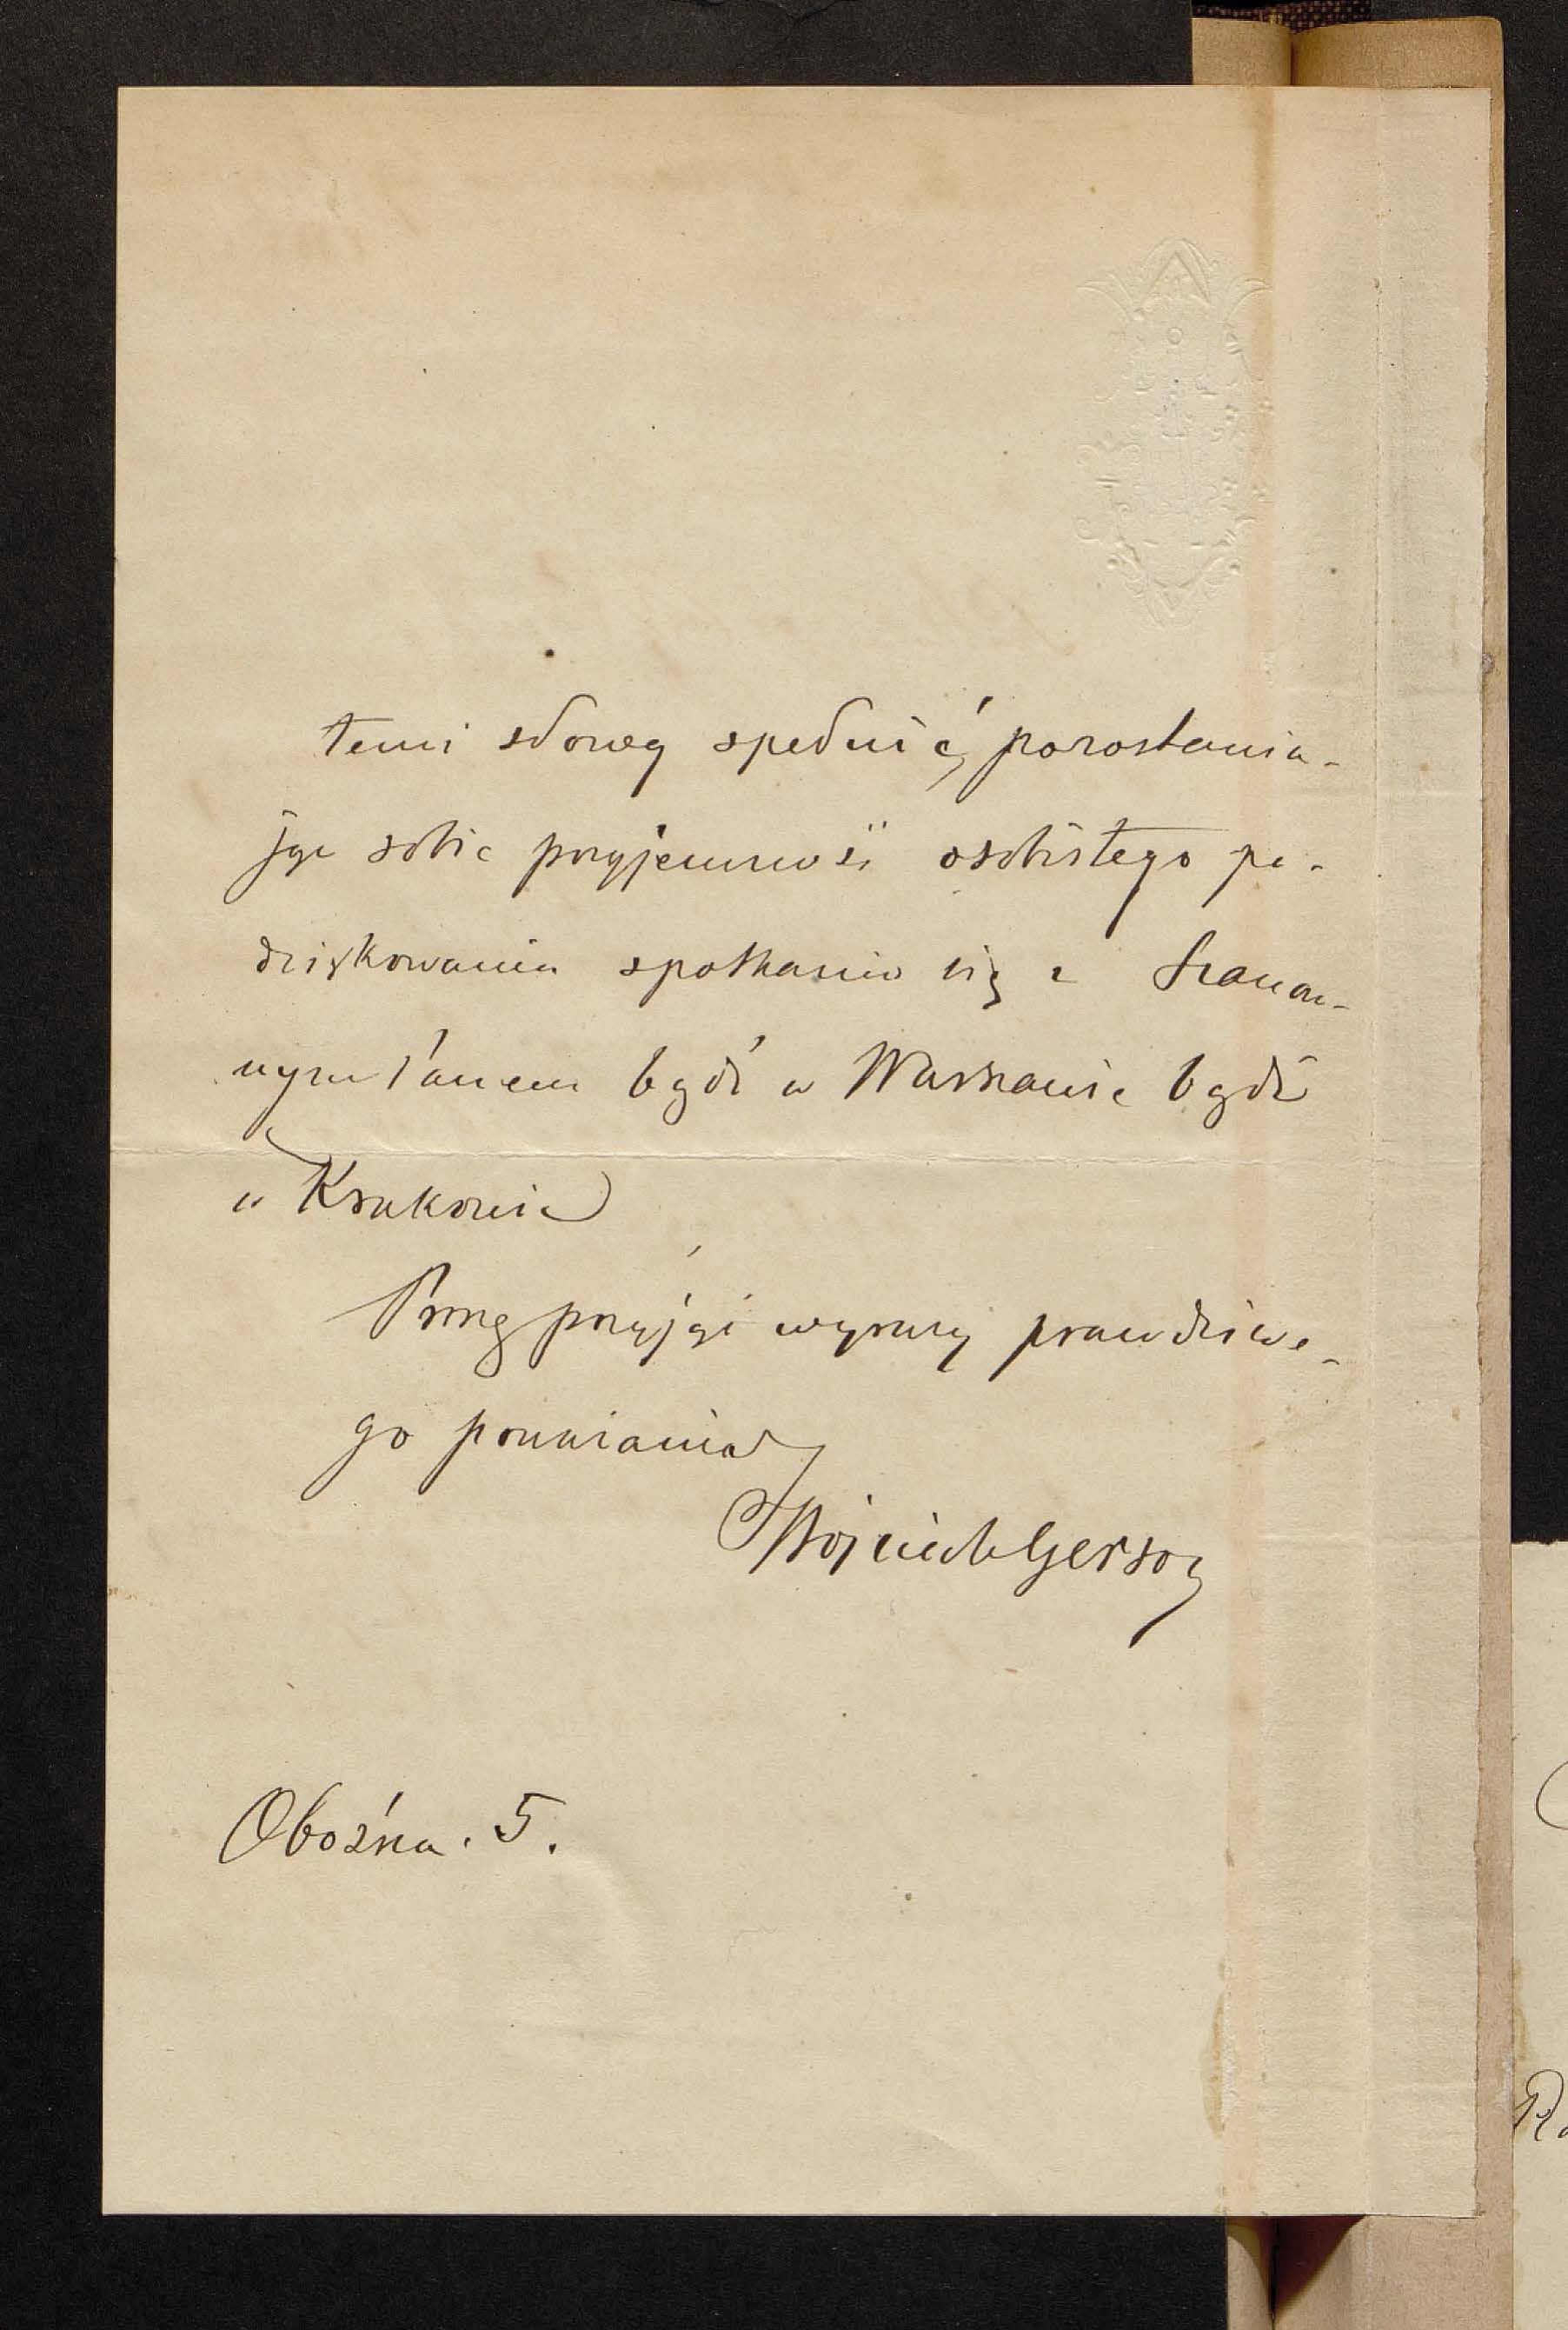 temi słowy spełnić, pozostawia-
jąc sobie przyjemność osobistego po-
dziękowania spotkania się z Szanow-
nym Panem bądź w Warszawie bądź
w Krakowie
Proszę przyjąć wyrazy prawdziwe-
go poważania
Wojciech Gerson
Oboźna. 5.